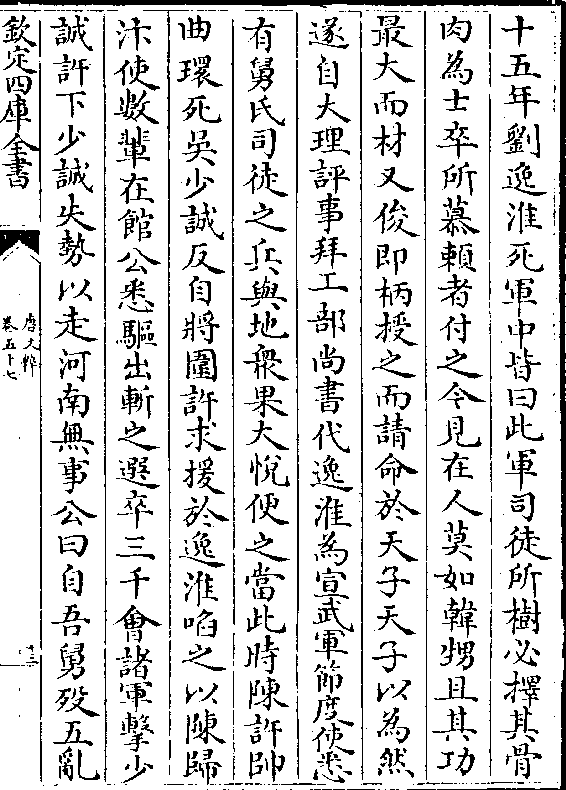 十五年劉逸淮死軍中皆曰此軍司徒所樹必擇其骨
肉為士卒所慕賴者付之今見在人莫如韓甥且其功
最大而材又俊即柄授之而請命於天子天子以為然
遂自大理評事拜工部尚書代逸淮為宣武軍節度使悉
有舅氏司徒之兵與地衆果大悅便之當此時陳許帥
曲環死吳少誠反自將圍許求援於逸淮啗之以陳歸
汴使數輩在館公悉驅出斬之選卒三千會諸軍擊少
誠許下少誠失勢以走河南無事公曰自吾舅歿五亂
欽定四庫全書
唐文粹
卷五十七
十三